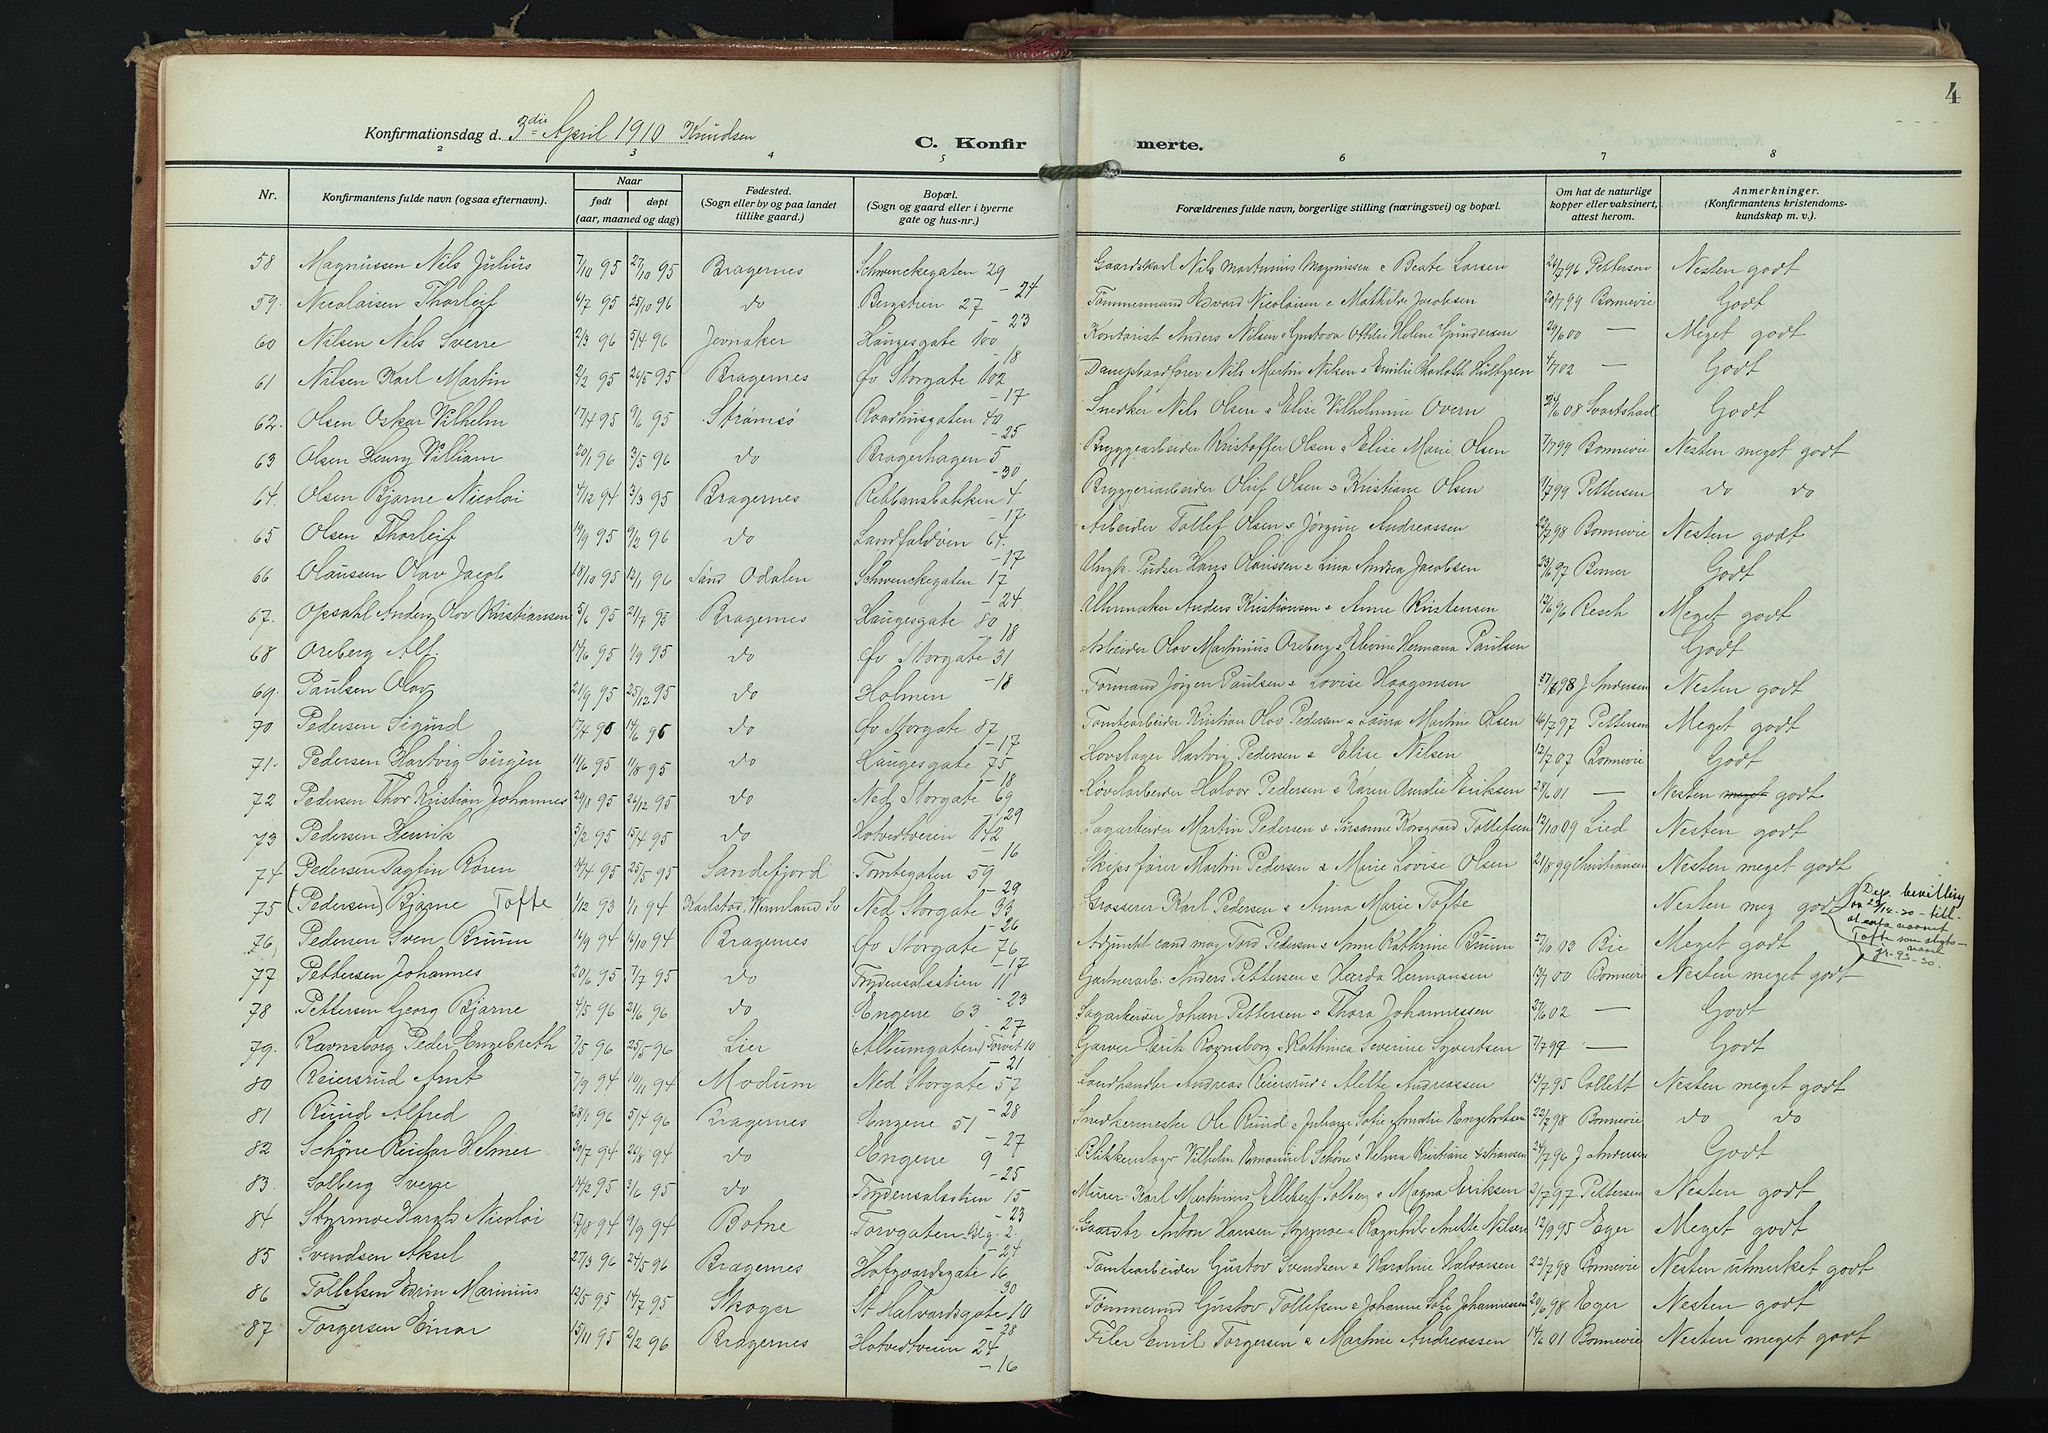 4
Konfirmationsdag d. 3die April 1910 Knudsen
C. Konfirmerte.
2 3 4 5 6 7 8
Nr. Konfirmantens fulde navn (ogsaa efternavn). Naar født døpt (aar, maaned og dag) Fødested. (Sogn eller by og paa landet tillike gaard.) Bopæl. (Sogn og gaard eller i byerne gate og hus-nr.) Forældrenes fulde navn, borgerlige stilling (næringsvei) og bopæl. Om hat de naturlige kopper eller vaksinert, attest herom. Anmerkninger. (Konfirmantens kristendomskundskap m. v.).
58 Magnussen Nils Julius 7/10 95 27/10 95 Bragernes Schwenckegaten 29 - 24 Gaardskarl Nils Martinius Magnussen & Beate Larsen 20/7 96 Pettersen Nesten godt
59. Nicolaisen Thorleif 6/7 95 25/10 96 do Bergstien 27 - 23 Tømmermand Edvard Nicolaisen & Mathilde Jacobsen 20/7 99 Bonnevie Godt
60 Nilsen Nils Sverre 2/3 96 5/4 96 Jevnaker Haugesgate 100 - 18 Kontorist Anders Nilsen & Gustava Ottilie Helene Gundersen — Meget godt
61 Nilsen Karl Martin 2/2 95 26/5 95 Bragernes Øv Storgate 102 - 17 Nils Martin Nilsen & Emilie Charlotte Hultgren 4/7 02 — Godt
62. Olsen Oskar Vilhelm 17/4 95 9/6 95 Strømsø Raadhusgaten 40 - 25 Snedker Nils Olsen & Elise Vilhelmine Overn 24/6 08 Svartshad Godt
63 Olsen Henry Villiam 20/1 96 3/5 96 do Bragerhagen 5 - 30 Bryggearbeider Kristoffer Olsen & Elise Marie Olsen 7/7 99 Bonnevie Nesten meget godt
64. Olsen Bjarne Nicolai 4/12 94 3/3 95 Bragernes Rebbansbakken 4 - 17 Bryggeriarbeider Oluf Olsen & Kristiane Olsen 1/7 99 Pettersen do do
65 Olsen Thorleif 19/9 95 9/2 96 do Landfaldøen 64. - 17 Arbeider Tollef Olsen & Jørgine Andreassen 22/7 98 Bonnevie Nesten godt
66 Olaussen Olav Jacob 18/10 95 12/1 96 Sønd Odalen Schwenckegaten 17 - 24 Pudser Hans Olaussen & Lina Andrea Jacobsen 23/6 97 Berner Godt
67. Opsahl Anders Olov Kristiansen 5/6 95 21/7 95 Bragernes Haugesgate 80 - 18 Uhrmaker Anders Kristiansen & Anne Kristensen 12/6 96 Resch Meget godt
68 Oreberg Alf. 14/6 95 1/9 95 do Øv Storgate 31 - 18 Arbeider Olov Martinius Oreberg & Hermana Paulsen Godt
69. Paulsen Olav 21/9 95 25/12 95 do Holmen Formand Jørgen Paulsen & Lovise Haagensen 27/6 98 J Andersen Nesten godt
70 Pedersen Sigurd 17/4 95 14/6 96 do Øv Storgate 87 - 17 Tomtearbeider Kristian Olav Pedersen & Laura Martine Olsen 16/7 97 Pettersen Meget godt
71. Pedersen Hartvig Eugen 11/6 95 11/8 95 do Haugesgate 75 - 18 Hovslager Hartvig Pedersen & Elise Nilsen 12/7 07 Bonnevie Godt
72 Pedersen Thor Kristian Johannes 29/8 95 26/12 95 do Ned Storgate 69 - 29 Høvlearbeider Halvor Pedersen & Karen Amalie Eriksen 28/6 01 — Nesten meget godt
73 Pedersen Henrik 5/2 95 15/4 95 do Hotvedtveien 142 - 16 Sagarbeider Martin Pedersen & Susanne Korsgaard Tollefsen 12/10 09 Lied Nesten godt
74 Pedersen Dagfin Røren 14/4 95 25/5 95 Sandefjord Tomtegaten 59 - 29 Skipsfører Martin Pedersen & Marie Lovise Olsen 21/8 99 Christiansen Nesten meget godt
75 (Pedersen) Bjarne Tofte 1/12 93 1/1 94 Karlstad, Vermland Sv Ned Storgate 33 - 26 Grosserer Karl Pedersen & Anna Marie Tofte Nesten meg godt
Dep. bevilling av 23/12-30 - till at anta navnet Tofte som slegtsnavn jr. 93-30.
76. Pedersen Sven Bruun 16/9 94 16/10 94 Bragernes Øv Storgate 76 - 17 Adjunkt cand mag Tord Pedersen & Anne Kathrine Bruun 27/10 03 Bie Meget godt
77 Pettersen Johannes 20/6 95 7/7 95 do Frydensalsstien 11 - 23 Gartnerarb. Anders Pettersen & Harda Hermansen 13/7 00 Bonnevie Nesten meget godt
78 Pettersen Georg Bjarne 4/5 96 21/6 96 do Engene 63 - 27 Sagarbeider Johan Pettersen & Thora Johannessen 27/6 02 — Godt
79. Ravnsborg Peder Engebreth 7/5 96 25/5 96 Lier (Albumgaten) Torvet 10 - 21 Garver Ravnsborg & Kathinca Severine Syvertsen 7/7 99 — Godt
80 Reiersrud Arnt 7/9 94 10/11 94 Modum Ned Storgate 57 - 28 Landhandler Andreas Reiersrud & Alette Andreassen 13/7 95 Collett Nesten meget godt
81 Ruud Alfred 28/1 96 5/4 96 Bragernes Engene 51 - 27 Snedkermester Ole Ruud & Juliane Sofie Amalie Engebretsen 22/7 98 Bonnevie do do
82 Schøne Reidar Helmer 30/7 94 26/8 94 do Engene 9 - 25 Blikkenslager Vilhelm Emanuel Schøne & Helma Kristiane Kristiansen 24/7 96 J Andersen Godt
83. Solberg Sverre 14/2 95 3/6 95 do Frydensalsstien 15 - 23 Murer Karl Martinius Ellebert Solberg & Magna Eriksen 2/7 97 Pettersen Nesten godt
84 Styrmoe Harald Nicolai 17/8 94 9/9 94 Botne Torvgaten Blg. 2. - 24 Gaardbr. Anton Hansen Styrmoe & Ragnhild Anette Nilsen 12/9 95 Eger Meget godt
85 Svendsen Aksel 27/3 96 24/5 96 Bragernes Hofgaardsgate 16 - 30 Tomtearbeider Gustav Svendsen & Karoline Halvorsen 22/7 98 Bonnevie Nesten utmerket godt
86 Tollefsen Edvin Marinius 12/5 95 14/7 95 Skoger St Halvardsgate 10 - 28 Tømmermd Gustav Tollefsen & Johanne Sofie Johannessen 20/6 98 Eger Nesten godt
87 Torgersen Einar 15/11 95 2/2 96 Bragernes Hotvedtveien 24 - 16 Filer Emil Torgersen & Martine Andreassen 14/6 01 Bonnevie Nesten meget godt